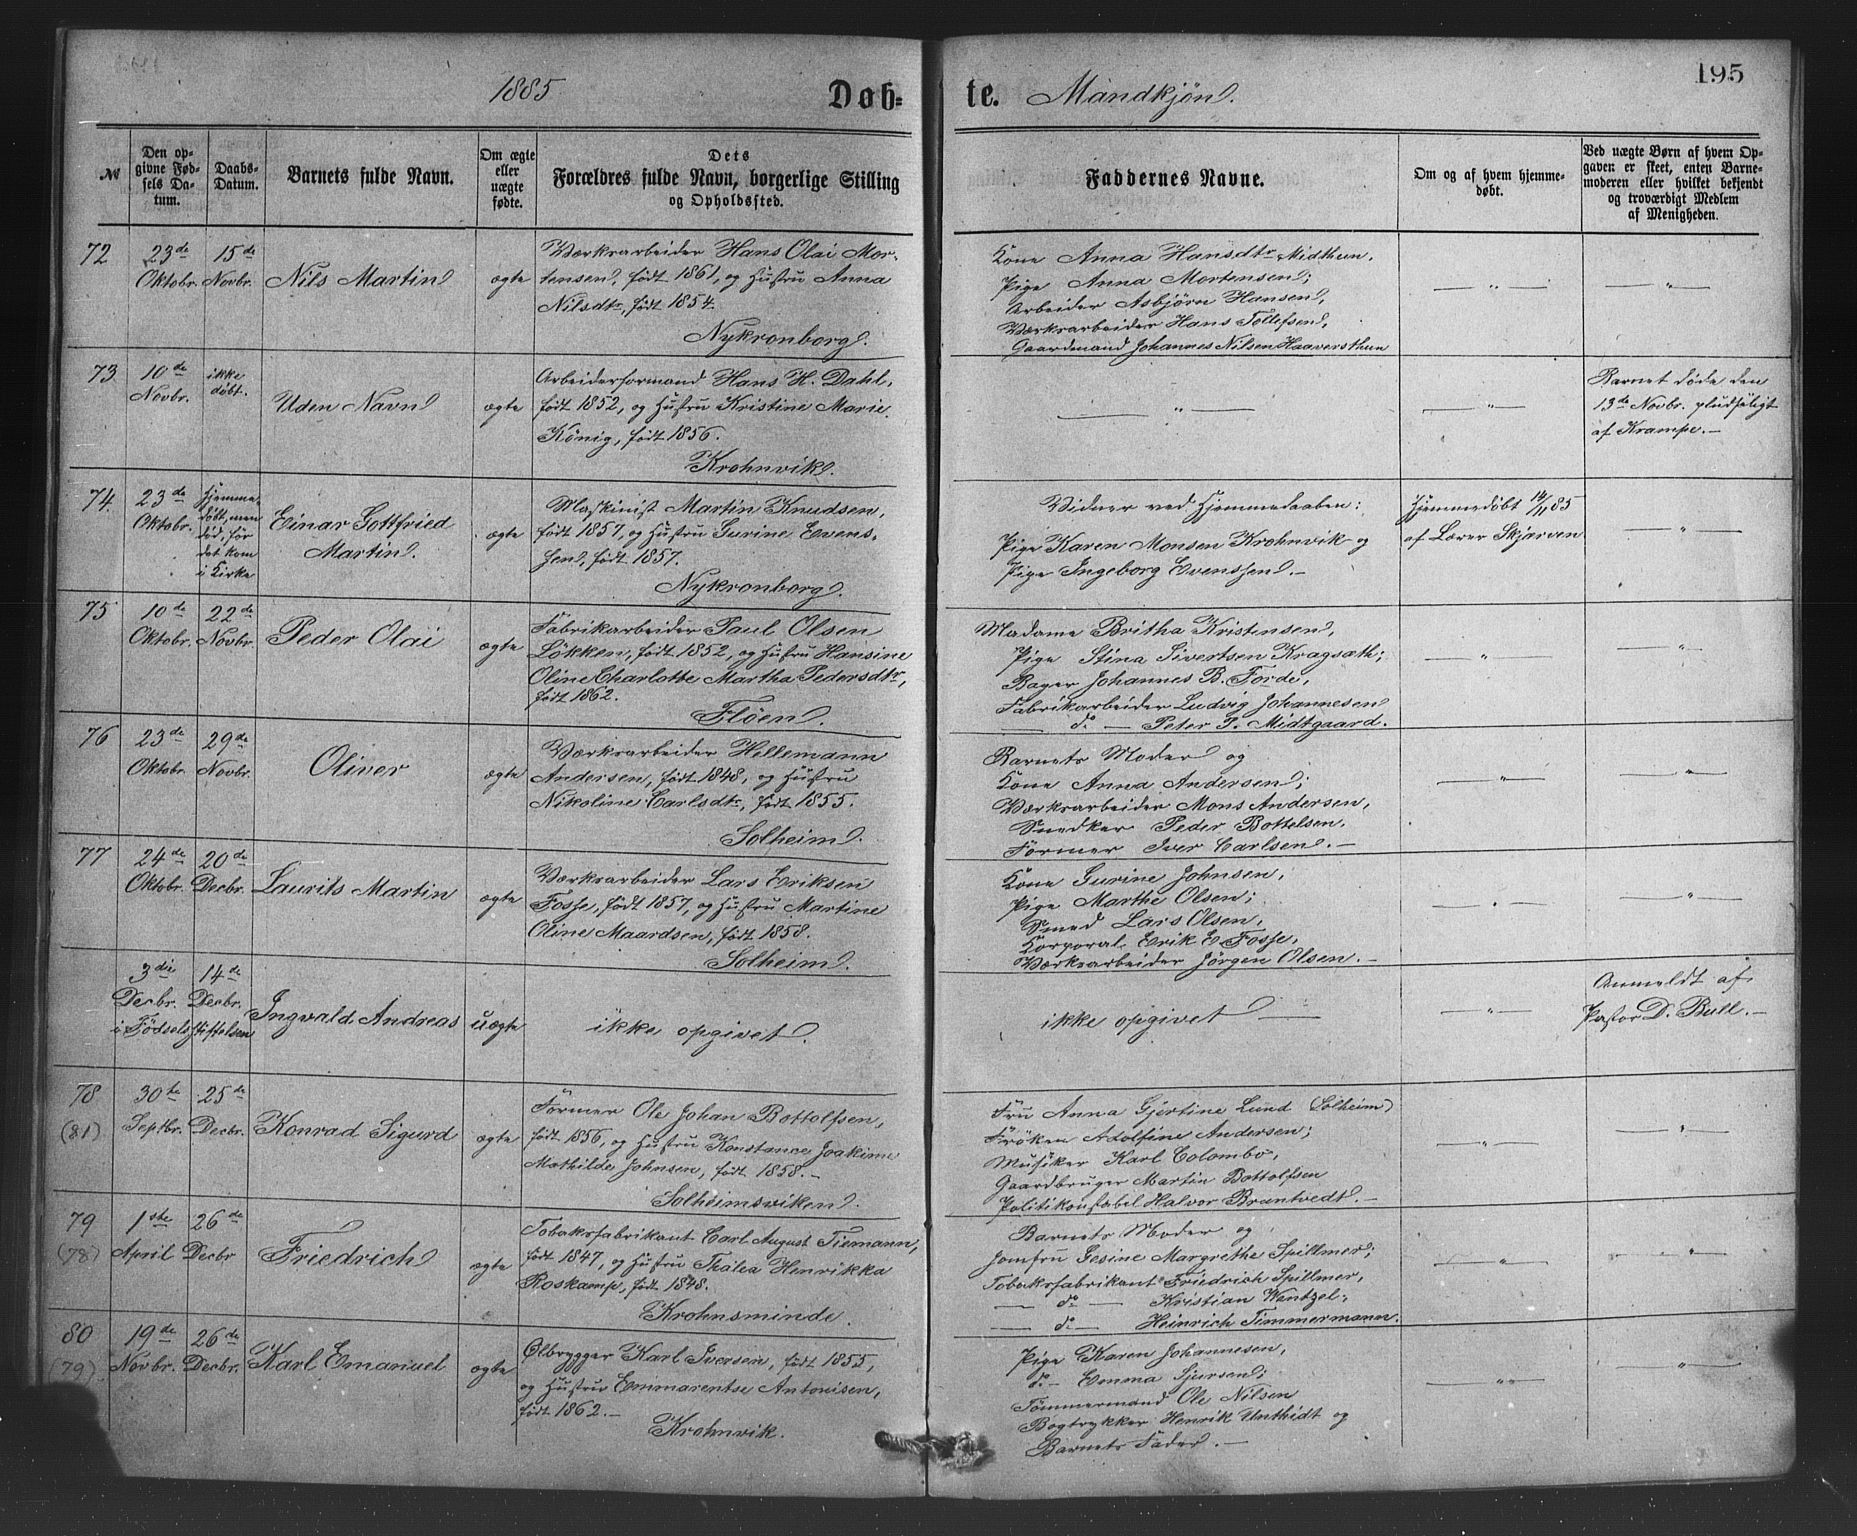 195
1885
Döb=
te. Mandkjön.
№
Den op-
givne Fød-
sels Da-
tum.
Daabs-
Datum.
Barnets fulde Navn.
Om ægte
eller
uægte
fødte.
Dets
Forældres fulde Navn, borgerlige Stilling
og Opholdssted.
Faddernes Navne.
Om og af hvem hjemme-
døbt.
Ved uægte Børn af hvem Op-
gaven er skeet, enten Barne-
moderen eller hvilket bekjendt
og troværdigt Medlem
af Menigheden.
72
23de
Oktobr.
15de
Novbr.
Nils Martin
ægte
Værksarbeider Hans Olai Mor-
tensen, født 1861, og Hustru Anna
Nilsdtr, født 1854.
Nykronborg.
Kone Anna Hansdtr Midthun,
Pige Anna Mortensen;
Arbeider Asbjörn Hansen,
Værksarbeider Hans Tollefsen,
Gaardmand Johannes Nilsen Haaversthun
— " —
— " —
73
10de
Novbr.
ikke
døbt.
Uden Navn
ægte
Arbeiderformand Hans H. Dahl,
født 1852, og Hustru Kristine Marie
König, født 1856.
Krohnvik.
— " —
— " —
Barnet døde den
13de Novbr. pludseligt
af Krampe. —
74.
23de
Oktobr.
Hjemme-
døbt, men
død, før
det kom
i Kirke
Einar Gottfried
Martin.
ægte
Maskinist Martin Knudsen,
født 1857, og Hustru Gurine Evens-
sen, født 1857.
Nykronborg.
Vidner ved Hjemmedaaben:
Pige Karen Monsen Krohnvik og
Pige Ingeborg Evenssen. —
Hjemmedøbt 14/11 85
af Lærer Skjarven
— " —
75
10de
Oktobr.
22de
Novbr.
Peder Olai
ægte
Fabrikarbeider Paul Olsen
Løkken, født 1852, og Hustru Hansine
Oline Charlotte Martha Pedersdtr,
født 1862.
Fløen.
Madame Britha Kristensen,
Pige Stina Sivertsen Kragsæth;
Bager Johannes B. Førde,
Fabrikarbeider Ludvig Johannesen
— do — Peter P. Midtgaard.
— " —
— " —
76
23de
Oktobr.
29de
Novbr.
Oliver
ægte
Værksarbeider Hellemann
Andersen, født 1848, og Hustru
Nikoline Carlsdtr, født 1855.
Solheim.
Barnets Moder og
Kone Anna Andersen;
Værksarbeider Mons Andersen,
Snedker Peder Bottelsen,
Former Iver Carlsen. —
— " —
— " —
77
24de
Oktobr.
20de
Decbr.
Laurits Martin
ægte
Værksarbeider Lars Eriksen
Fosse, født 1857, og Hustru Martine
Oline Maardsen, født 1858.
Solheim.
Kone Gurine Johnsen,
Pige Marthe Olsen;
Smed Lars Olsen,
Korporal Erik E. Fosse,
Værksarbeider Jörgen Olsen. —
— " —
— " —
3die
Decbr.
14de
Decbr.
i Fødselsstiftelsen
Ingvald Andreas
uægte
ikke opgivet.
ikke opgivet —
— " —
Anmeldt af
Pastor D. Bull. —
78
(81)
30te
Septbr.
25de
Decbr.
Konrad Sigurd
ægte
Former Ole Johan Bottolfsen,
født 1856, og Hustru Konstance Joakime
Mathilde Johnsen, født 1858. —
Solheimsviken.
Fru Anna Gjertine Lund (Solheim)
Frøken Adolfine Andersen;
Musiker Karl Colombo,
Gaardbruger Martin Bottolfsen
Politikonstabel Halvor Brantvedt. —
— " —
— " —
79
(78)
1ste
April
26de
Decbr
Friedrich
ægte
Tobaksfabrikant Carl August Tiemann,
født 1847, og Hustru Thalea Henrikka
Roskamp, født 1848.
Krohnsminde.
Barnets Moder og
Jomfru Gesine Margrethe Spillmer;
Tobaksfabrikant Friedrich Spillmer,
— do — Kristian Wentzel,
— do — Heinrich Timmermann.
— " —
— " —
80
(79)
19de
Novbr.
26de
Decbr.
Karl Emanuel
ægte
Ølbrygger Karl Iversen, født 1855,
og Hustru Emmarentse Antonisen,
født 1862. —
Krohnvik.
Pige Karen Johannesen,
do — Emma Sjursen;
Tömmermand Ole Nilsen
Bogtrykker Henrik Unthidt og
Barnets Fader. —
— " —
— " —